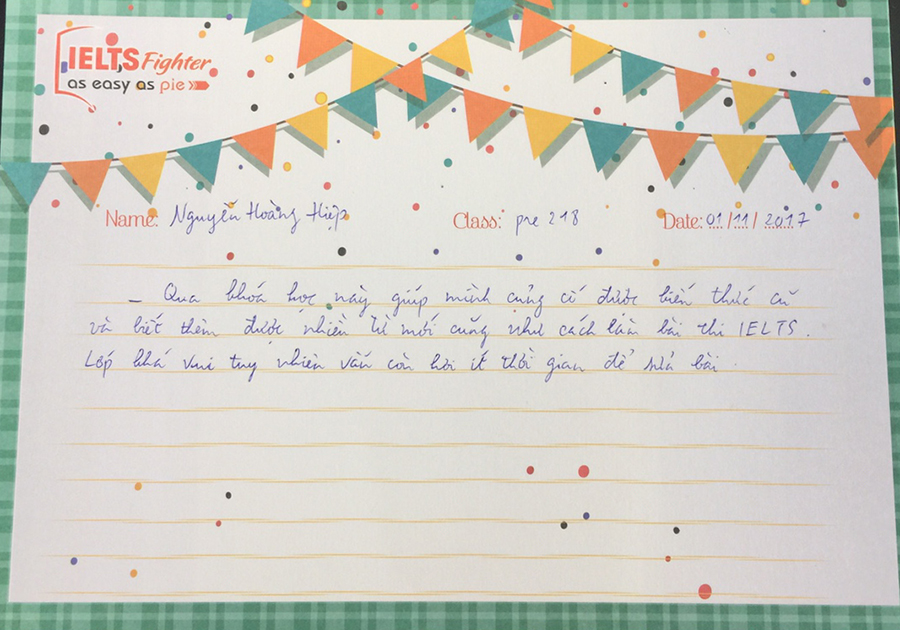 IELTS Fighter
as easy as pie
Name: Nguyễn Hoàng Hiệp Class: pre 218 Date: 01/11/2017
_ Qua khoá học này giúp mình củng cố được kiến thức cũ
và biết thêm được nhiều từ mới cũng như cách làm bài thi IELTS.
Lớp khá vui tuy nhiên vẫn còn hơi ít thời gian để sửa bài.